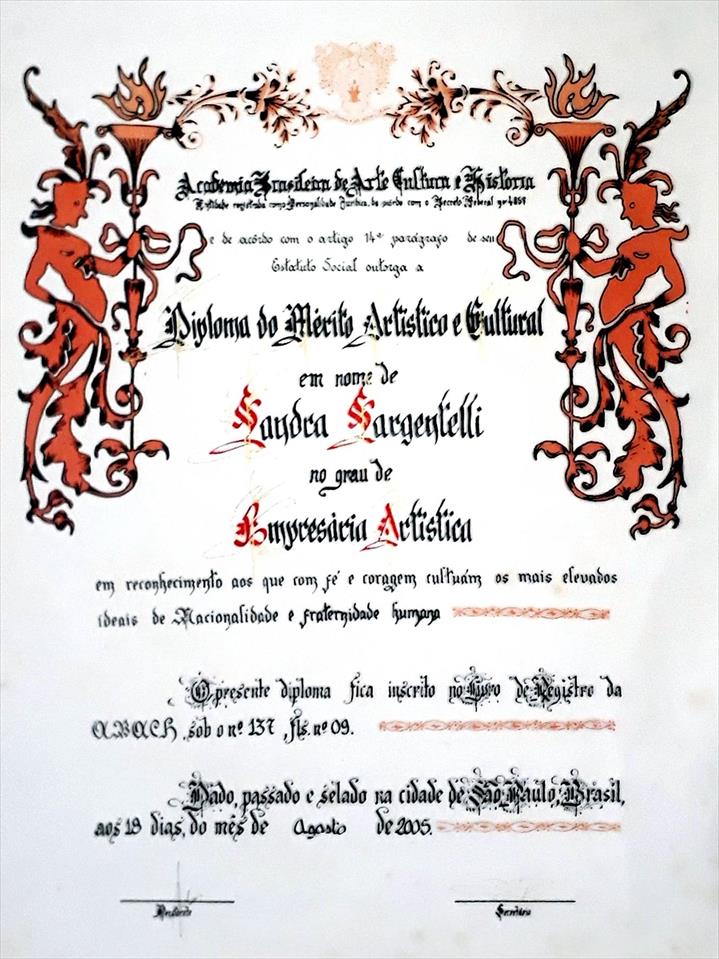 Academia Brasileira de Arte Cultura e Historia
Entidade registrada como Personalidade Juridica, de acôrdo com o Decreto Federal nº 4857
e de acôrdo com o artigo 14º parágrafo de seu
Estatuto Social outorga a
Diploma do Mérito Artistico e Cultural
em nome de
Sandra Sargentelli
no grau de
Empresária Artistica
em reconhecimento aos que com fé e coragem cultuám os mais elevados
ideais de Nacionalidade e fraternidade humana
O presente diploma fica inscrito no Livro de Registro da
ABACH, sob o nº. 137, fls. nº 09.
Dado, passado e selado na cidade de São Paulo, Brasil,
aos 19 dias, do mês de Agosto de 2005.
Presidente Secretário